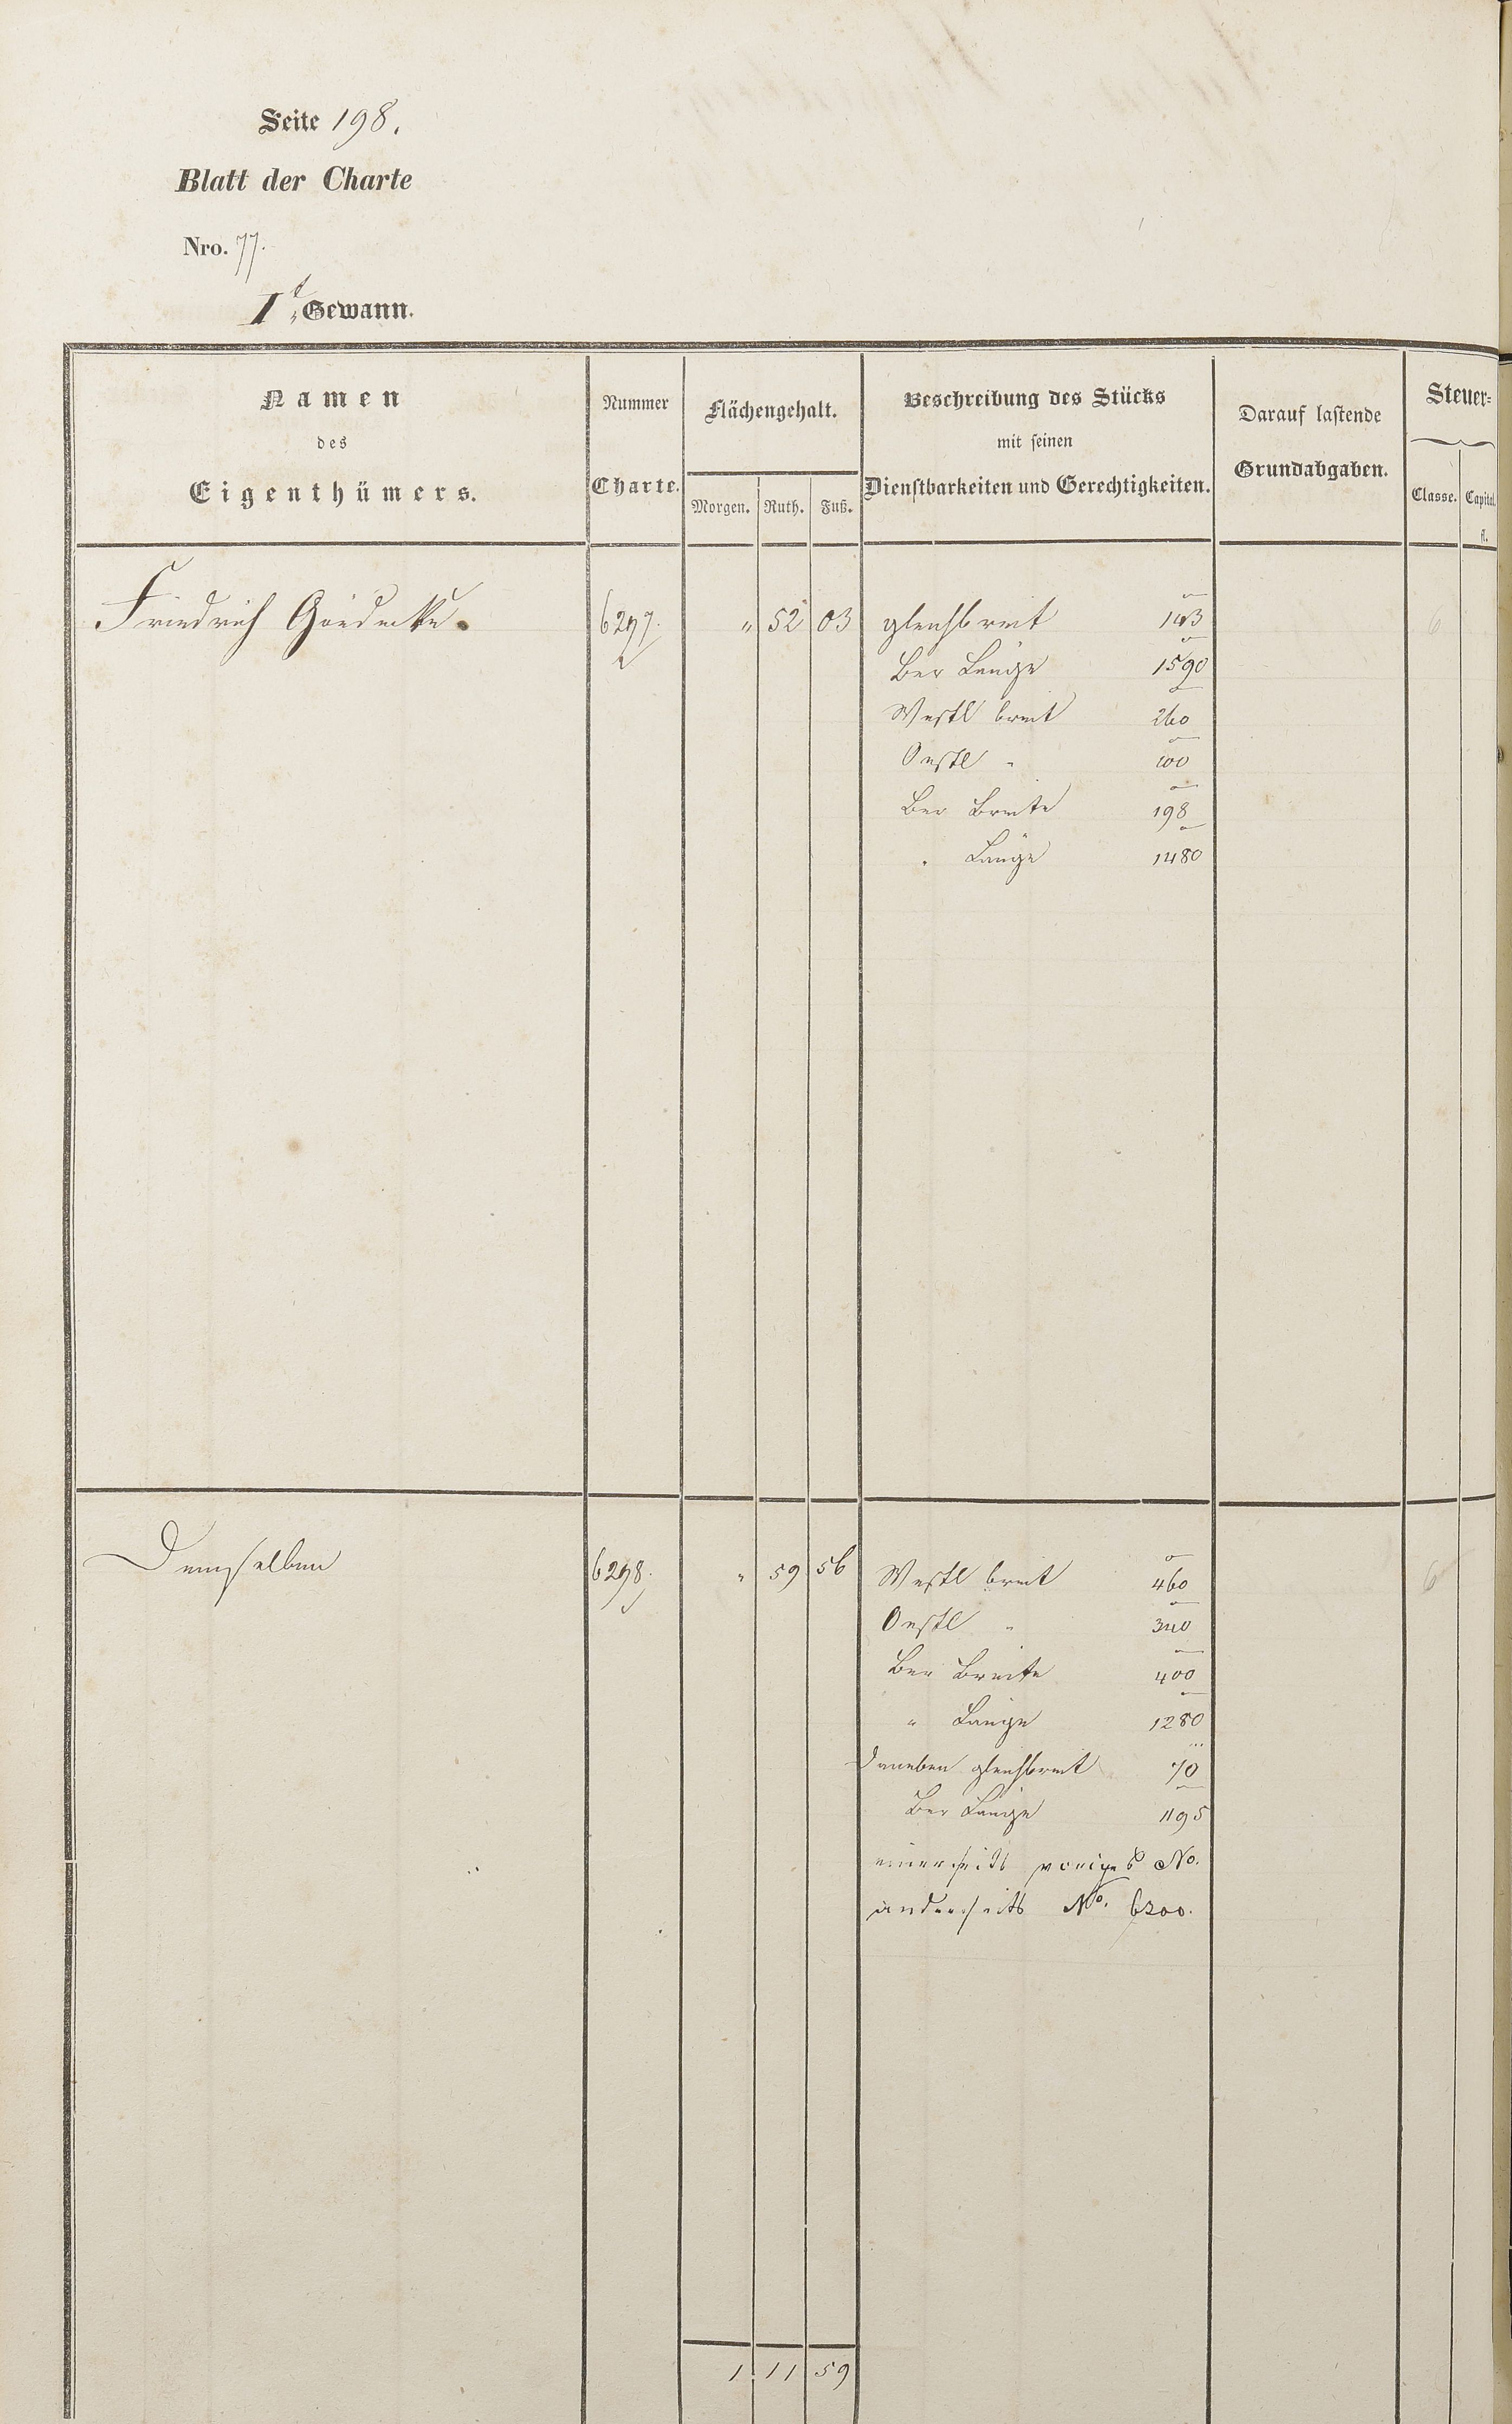 Seite 198.
Blatt der Charte
Nro. 77.
I.t Gewann.
Namen
des
Eigenthümers.
Nummer
Charte.
Flächengehalt.
Morgen. Ruth. Fuß.
Beschreibung des Stücks
mit seinen
Dienstbarkeiten und Gerechtigkeiten.
Darauf lastende
Grundabgaben.
Steuer=
Classe. Capital.
fl.
Friedrich Goedecke. 6297. " 52 03 gleichbreit 143 6
Ber Länge 1590
Westl breit 260
Oestl " 100
Ber Breite 198
" Länge 1480
Demselben 6298. " 59 56 Westl breit 460 6
Oestl " 340
Ber Breite 400
" Länge 1280
Daneben gleichbreit 70
Ber Länge 1195
einerseits voriges No.
anderseits No. 6300.
1 11 59